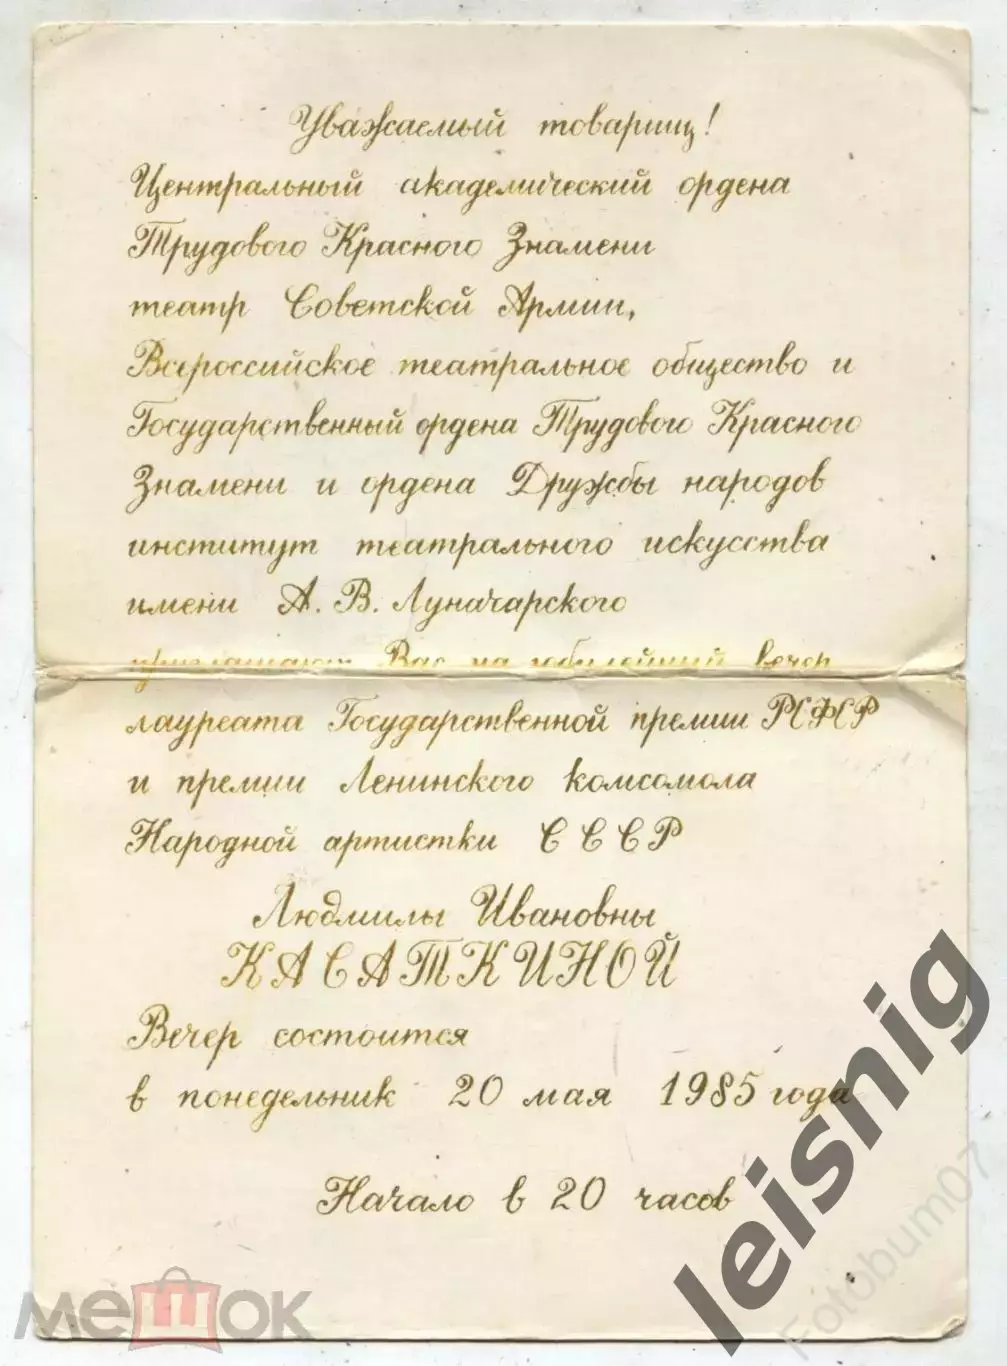 Уважаемый товарищ!
Центральный академический ордена
Трудового Красного Знамени
театр Советской Армии,
Всероссийское театральное общество и
Государственный ордена Трудового Красного
Знамени и ордена Дружбы народов
институт театрального искусства
имени А. В. Луначарского
приглашают Вас на юбилейный вечер
лауреата Государственной премии РСФСР
и премии Ленинского комсомола
Народной артистки СССР
Людмилы Ивановны
КАСАТКИНОЙ
Вечер состоится
в понедельник 20 мая 1985 года
Начало в 20 часов
leisnig
Fotobum07
мешок